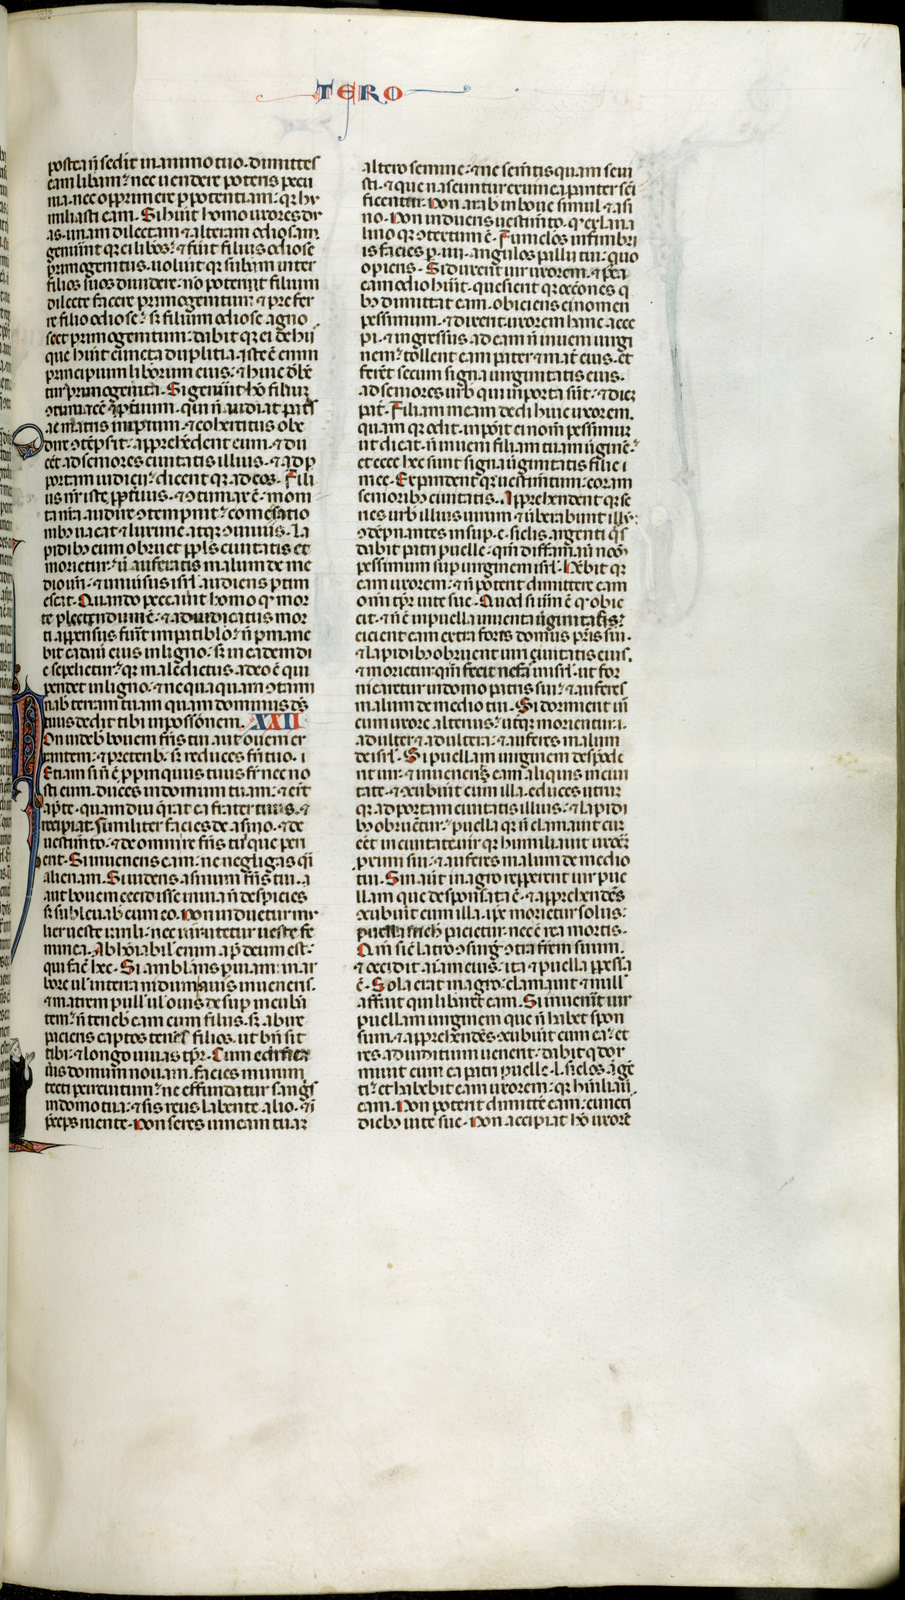 TERO
postea ñ sederit in animo tuo. dimittes
eam libam̄. nec uendere poteris pecu
nia. nec opprimere p̱ potentiam. qꝛ hu
miliasti eam. Si hūit homo uxores du
as. unam dilectam ⁊ alteram odiosam.
genuīnt qꝫ ei libos. ⁊ fūit filius odiose
primogenitus. uoluit qꝫ subam inter
filios suos diuidere. nō poterit filium
dilecte facere primogenitum. ⁊ prefer
re filio odiose. sꝫ filium odiose agno
scet primogenitum. dabit qꝫ ei de hiis
que hūit cuncta duplicia. iste ē enim
principium liborum eius. ⁊ huic debē
tur primogenita. Si genūit hō filium
ꝯtumacē ⁊ ꝓtiuum. qui ñ audiat patris
ac matris impium. ⁊ cohercitus obe
dire ꝯtēpserit. apprehēdent eum. ⁊ du
cēt ad seniores ciuitatis illius. ⁊ ad
portam iudicii. dicent qꝫ ad eos. Fili
us nr̄ iste ꝓtiuus. ⁊ ꝯtumax ē. moni
ta nr̄a audire ꝯtempnit. comesatio
nibꝫ uacat ⁊ luxurie atqꝫ ꝯuiuiis. La
pidibꝫ eum obruet ppl̄s ciuitatis et
morietur. ut auferatis malum de me
dio ur̄i. ⁊ uniuersus isrl̄ audiens ptim
escat. Quando peccauit homo qꝫ mor
te plectendum ē. ⁊ adiudicatus mor
ti appensus fūit in patiblo. ñ pmane
bit cadau̅ eius in ligno. sꝫ in eadem di
e sepelietur. qꝛ maledictus a deo ē qui
pendet in ligno. ⁊ nequaquam ꝯtami
nab terram tuam quam dominus ds̄
tuus dedit tibi in possōnem. XXII
Non uideb bouem fr̄is tui aut ouem er
rantem. ⁊ preterib. sꝫ reduces fr̄i tuo.
Etiam si ñ ē ꝓpinquus tuus fr̄ nec no
sti eum. duces in domum tuam. ⁊ erit
ap̱ te. quamdiu q̄rat ea frater tuus. ⁊
recipiat. Similiter facies de asino. ⁊ de
uestim̄to. ⁊ de omni re fr̄is tui que peri
erit. Si inueneris eam. ne negligas q̄si
alienam. Si uideris asinum fr̄is tui.
aut bouem cecidisse in uia ñ despicies
sꝫ subleuab cum eo. Non induetur mu
lier ueste uirili. nec uir utetur ueste fe
minea. Abhoīabil' enim ap̱ deum est.
qui fac̄ hec. Si ambulans p̱ uiam. in ar
bore ul' in terra nidum auis inueneris.
⁊ matrem pull' ul' ouis desup̱ incubā
tem. ñ teneb eam cum filiis. sꝫ abire
pacieris captos tenēs filios. ut bn̄ sit
tibi. ⁊ longo uiuas tpr̄. Cum edificau
eris domum nouam. facies murum
tecti p circuitum. ne effundatur sanguis
in domo tua. ⁊ sis reus labente alio. ⁊ ī
preceps ruente. Non seres uineam tuam
altero semine. ⁊ ne sem̄tis quam seui
sti. ⁊ que nascuntur ex uinea pariter sc̄i
ficentur. Non arab in boue simul ⁊ asi
no. Non indueris uestim̄to. qꝫ ex lana
lino qꝫ ꝯtextum ē. Funiclos in fimbri
is facies p̱ .iiii. angulos pallii tui. quo
opieris. Si duxerit uir uxorem. ⁊ p̱ea
eam odio hūit. quesierit qꝫ occōnes q̄
bꝫ dimittat eam. obiciens ei nomen
pessimum. ⁊ dixerit. uxorem hanc acce
pi. ⁊ ingressus ad eam ñ inueni uirgi
nem. tollent eam pater ⁊ mat̄ eius. et
ferēt secum signa uirginitatis eius.
ad seniores urb̄ qui in porta sūt. ⁊ dicꝫ
pat̄. Filiam meam dedi huic uxorem.
quam qꝛ odit. inpōit ei nom̄ pessimum.
ut dicat. ñ inueni filiam tuam ūginē.
et ecce hec sunt signa ūginitatis filie
mee. Expandent qꝫ uestimtum. coram
senioribꝫ ciuitatis. Apprehendent qꝫ se
nes urb̄ illius uirum. ⁊ ūberabunt illum.
ꝯdēpnantes insup̱. c. siclis argenti q̄s
dabit patri puelle. qm̄ diffamauit nom̄
pessimum sup̱ uirginem isrl̄. Hēbit qꝫ
eam uxorem. ⁊ ñ poterit dimittere eam
omī tpr̄ uite sue. Quod si uerū ē qꝫ obie
cit. ⁊ ñ ē in puella inuenta ūginitas.
eicient eam extra fores domus pr̄is sui.
⁊ lapidibꝫ obruent uiri ciuitatis eius.
⁊ morietur. qm̄ fecit nefā in isrl̄. ut for
nicaretur in domo patris sui. ⁊ auferes
malum de medio tui. Si dormierit uir
cum uxore alterius. utqꝫ morientur. i.
adulter ⁊ adultera. ⁊ auferes malum
de isrl̄. Si puellam uirginem despōde
rit uir. ⁊ inuenerit eam aliquis in ciui
tate. ⁊ ꝯcubuīt cum illa. educes utrūqꝫ
ad portam ciuitatis illius. ⁊ lapidi
bꝫ obruētur. puella qꝛ ñ clamauit cum
eēt in ciuitate. uir qꝛ humiliauit uxorem
p̱ximi sui. ⁊ auferes malum de medio
tui. Sin aūt in agro reppererit uir pue
llam que desponsata ē. ⁊ apprehendēs
ꝯcubuīt cum illa. ipse morietur solus.
puella nichil pacietur. nec ē rea mortis.
Qm̄ sic̄ latro ꝯsurg̃ ꝯtra fr̄em suum.
⁊ occidit aīam eius. ita ⁊ puella p̱pessa
ē. Sola erat in agro. clamauit ⁊ null'
affuit qui libaret eam. Si inuenit uir
puellam uirginem que ñ habet spon
sum. ⁊ apprehendēs ꝯcubuīt cum ea. et
res ad iuditium uenerit. dabit q̄ dor
miuit cum ea patri puelle .l. siclos arge
ti. et habebit eam uxorem. qꝛ humiliauit
eam. Non poterit dimittē eam. cuncti
diebꝫ uite sue. Non accipiat hō uxorē